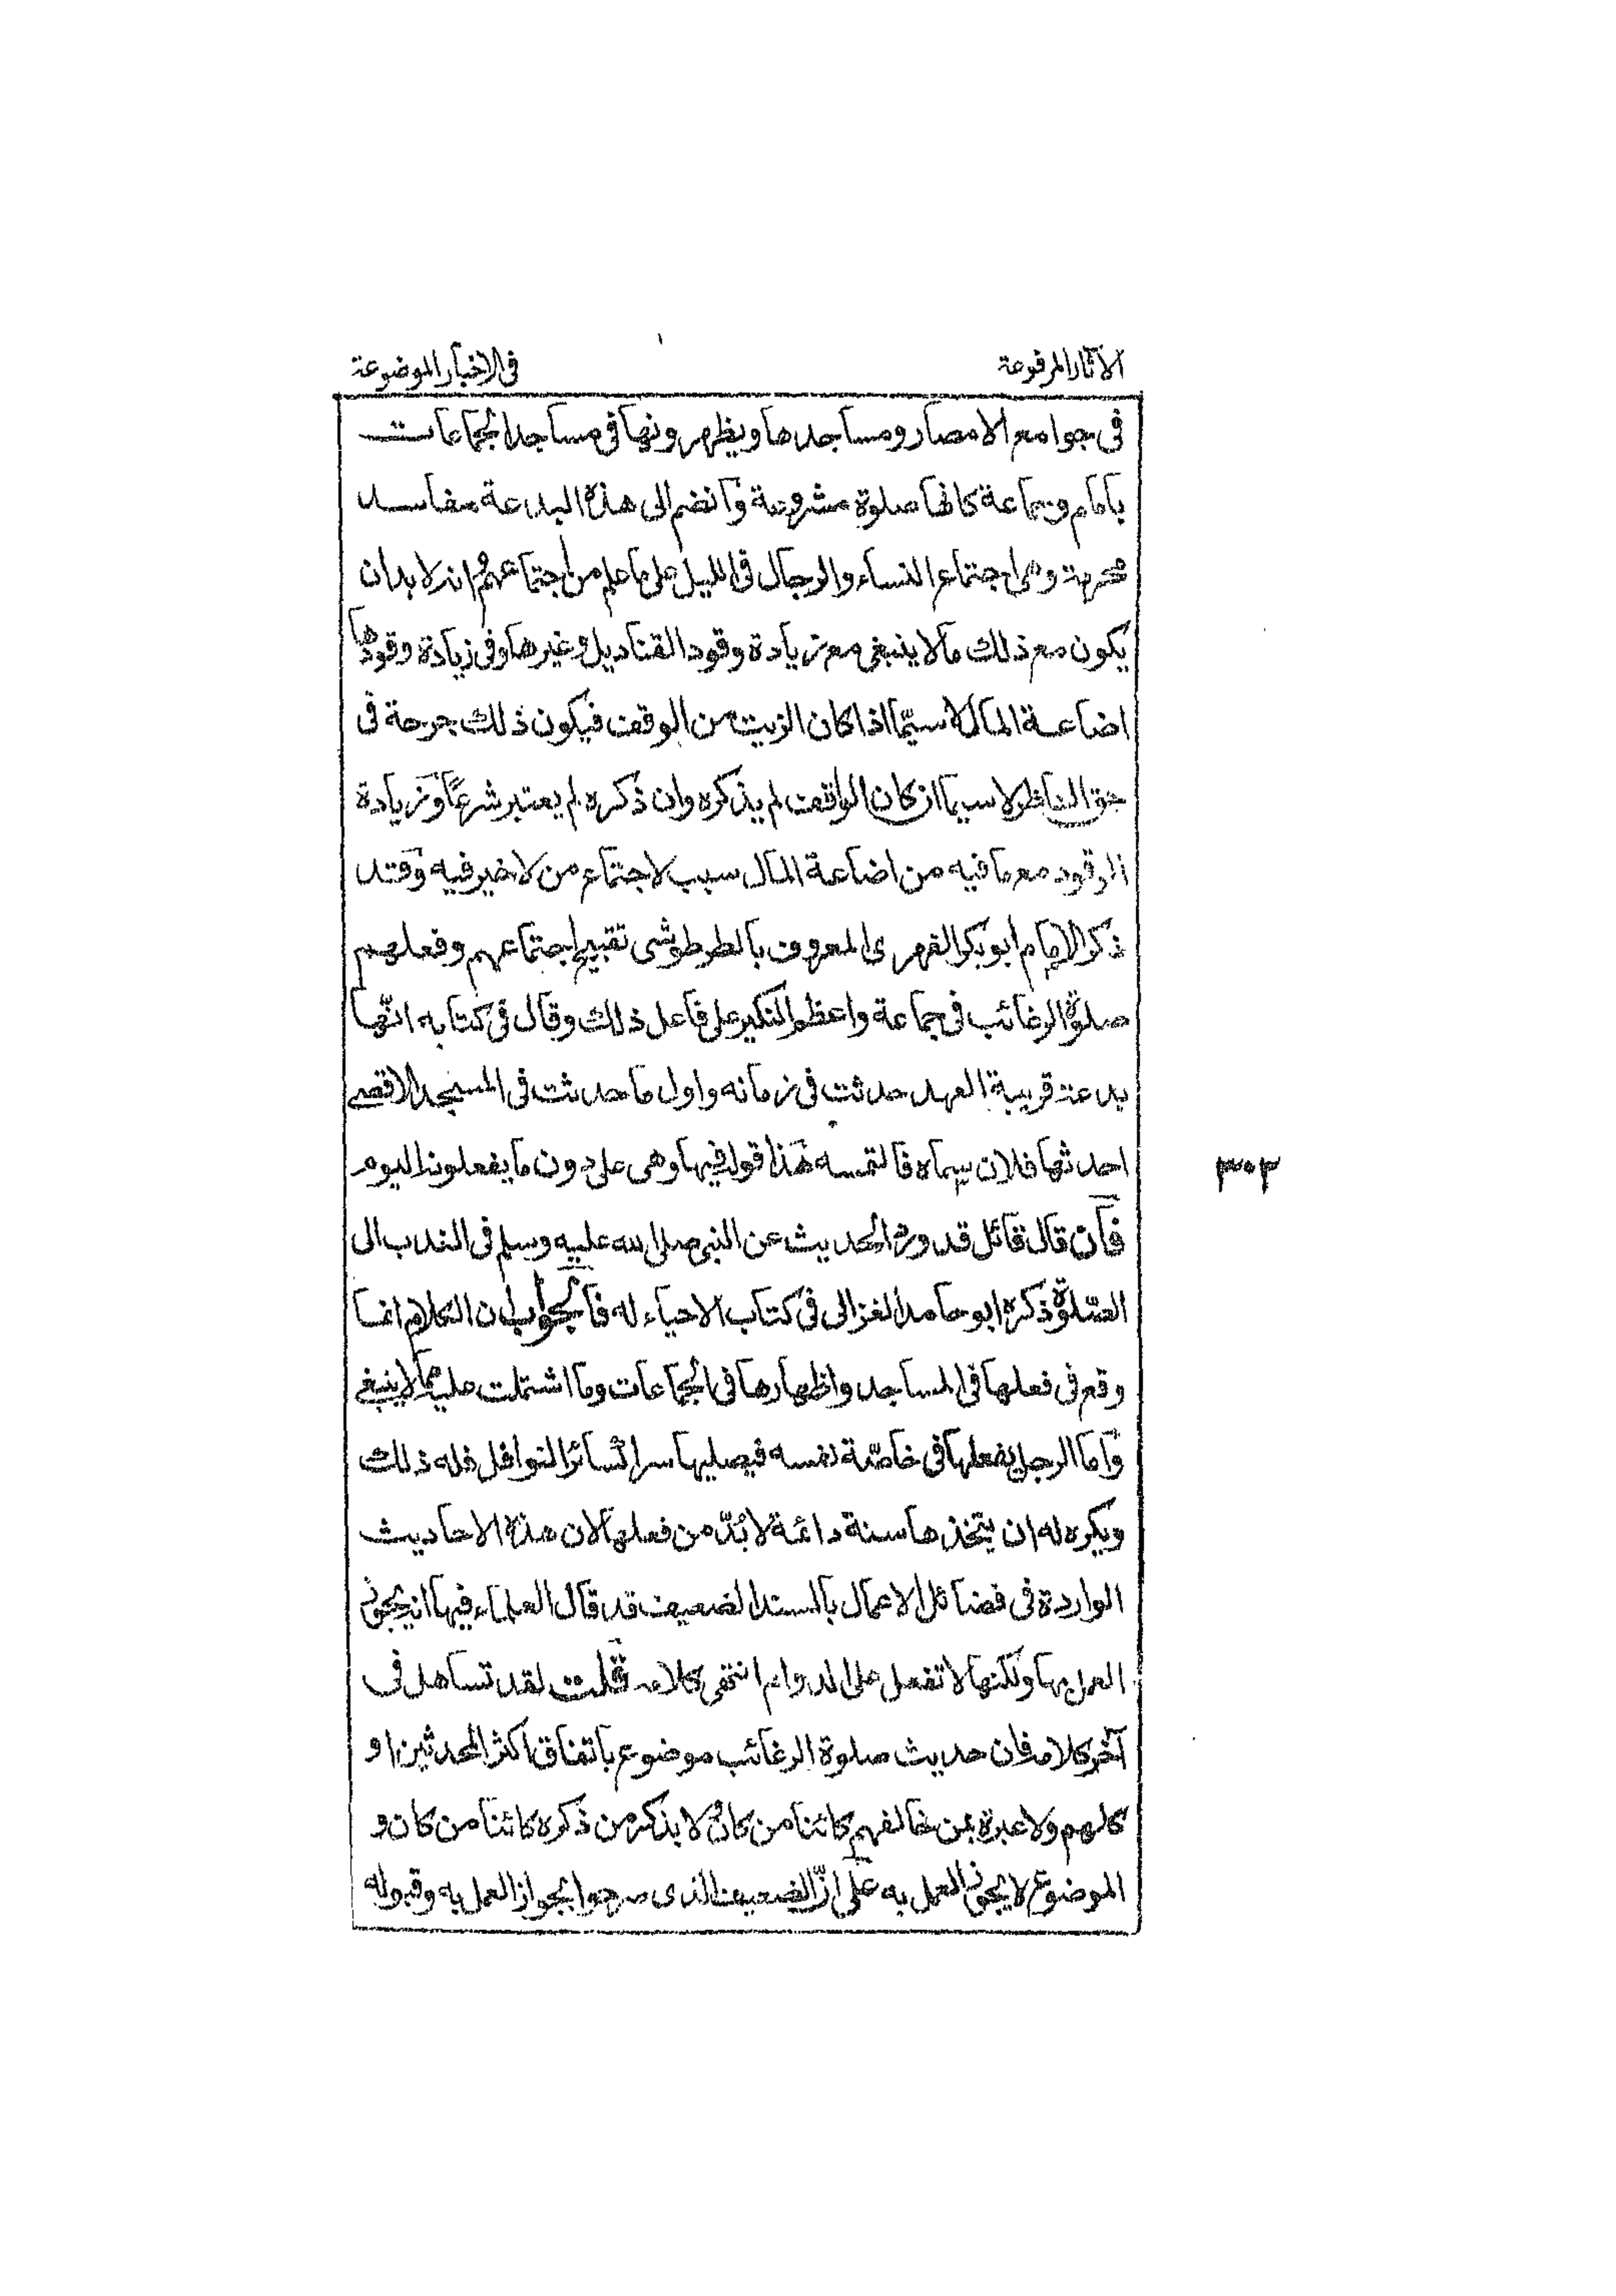 الآثار المرفوعة
فى الاخبار الموضوعة
فى جوامع الامصار ومساجدها ويظهرونها فى مساجد الجماعات
بامام وجماعة كانها صلوة مشروعة وانضم الى هذه البدعة مفاسد
محرمة وهى اجتماع النساء والرجال فى الليل على ما علم من اجتماعهم انه لا بد ان
يكون مع ذلك ما لا ينبغى مع زيادة وقود القناديل وغيرها وفى زيادة وقودها
اضاعة المال لا سيّما اذا كان الزيت من الوقف فيكون ذلك جرحة فى
حق الناظر لا سيما ان كان الواقف لم يذكره وان ذكره لم يعتبر شرعًا وزيادة
الوقود مع ما فيه من اضاعة المال سبب لاجتماع من لا خير فيه وقد
ذكر الامام ابو بكر الفهرى المعروف بالطرطوشى تقبيح اجتماعهم وفعلهم
صلوة الرغائب فى جماعة واعظم النكير على فاعل ذلك وقال فى كتابه انّها
بدعة قريبة العهد حدثت فى زمانه واول ما حدثت فى المسجد الاقصى
احدثها فلان سماه فالتمسه هذا قوله فيها وهى على دون ما يفعلونه اليوم
فان قال قائل قد ورد الحديث عن النبى صلى الله عليه وسلم فى الندب الى
الصّلوة ذكره ابو حامد الغزالى فى كتاب الاحياء له فالجواب ان الكلام انما
وقع فى فعلها فى المساجد واظهارها فى الجماعات وما اشتملت عليه مما لا ينبغى
واما الرجل يفعلها فى خاصّة نفسه فيصليها سرا كسائر النوافل فله ذلك
ويكره له ان يتخذها سنة دائمة لا بدّ من فعلها لان هذه الاحاديث
الواردة فى فضائل الاعمال بالسند الضعيف قد قال العلماء فيها انه يجوز
العمل بها ولكنها لا تفعل على الدوام انتهى كلامه قلت لقد تساهل فى
آخر كلامه فان حديث صلوة الرغائب موضوع باتفاق اكثر المحدثين او
كلهم ولا عبرة بمن خالفهم كائنا من كان ولا بذكر من ذكره كائنا من كان و
الموضوع لا يجوز العمل به على انّ الضعيف الذى صرحوا بجواز العمل به وقبوله
٣٠٣